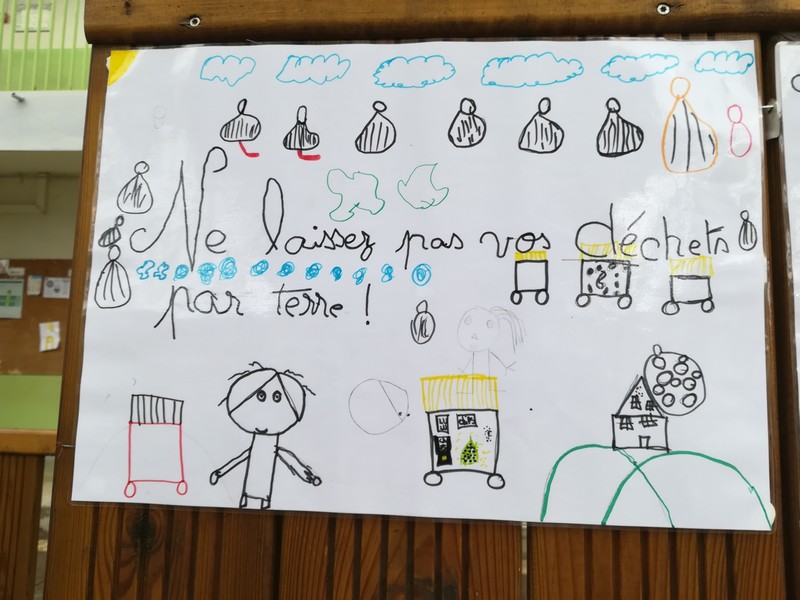 Ne laissez pas vos déchets
par terre !